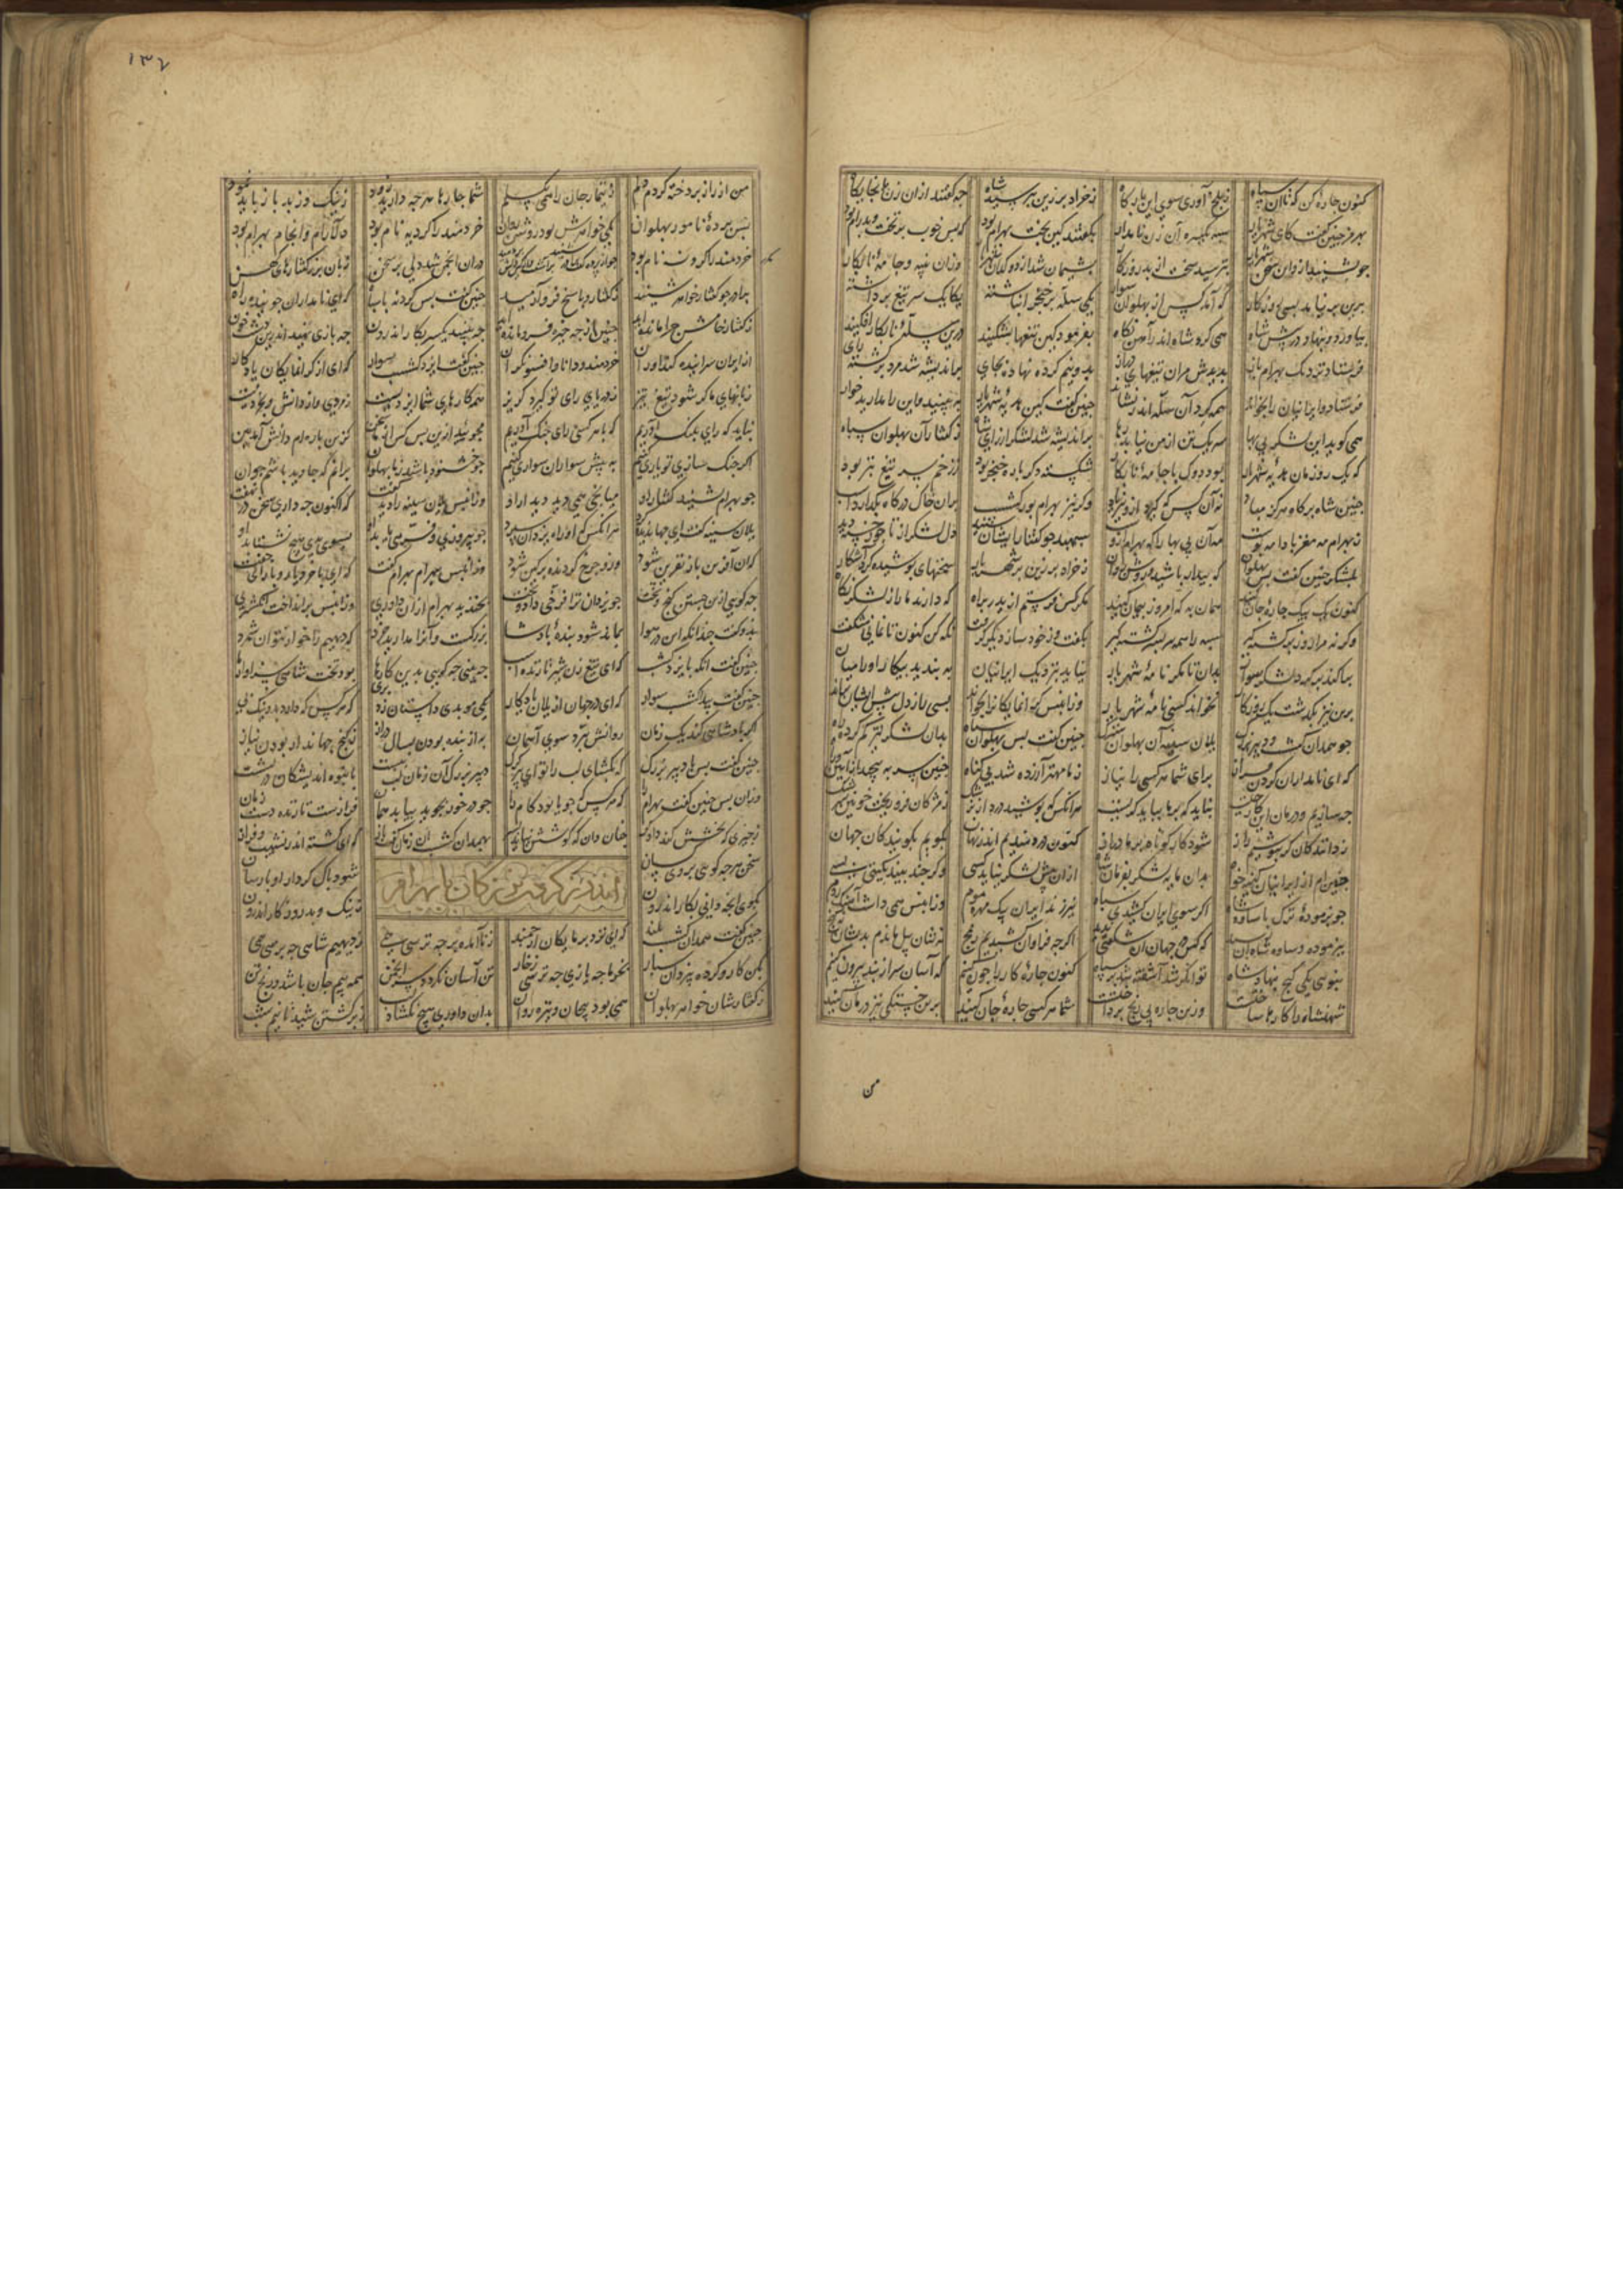 کنون چاره کن که تا آن سپاه ز بلخ آوری سوی این بارگاه ز خراد برزین بپرسید شاه چه گفتند ازان زن بنجا بگاه
بهرمز چنین گفت کای شهریار سپه یکسره آن زن نامدار بگفتند کین تخت بهرام بود که بس خوب بر تخت و پدرام بود
چو بشنید ازو این سخن شهریار بترسید سخت از بد روزگار پشیمان شد از دوکدان شهریار وزان پنبه و جامه نابکار
برین بر نیامد بسی روزکار که آمد کس از پهلوان سوار یکی سله پر خنجر انباشته یکایک سر تیغ برداشته
بیاورد و بنهاد در پیش شاه همی کرد شاه اندر آهن نکاه بفرمود کین تیغها بشکنند درین سله نابکار افکنند
فرستاد نزدیک بهرام باز بدیدش مران تیغهای دونیم کرده نهاده بجای براندیشه شد مرد برکشته رای
فرستاد و ایرانیان را بخواند همه کرد آن سله اندر نشاند چنین گفت کین هدیه شهریار ببینید و این را مدارید خوار
همی کوید این لشکر بی بها سر یک تن از من نیابد رها براندیشه شد لشکر از رای شاه ز کفتار آن پهلوان سپاه
که یک روزمان هدیه شهریار بود دوک با جامه نابکار شکسته دکر باره خنجر بود ز زخم سر تیغ بتر بود
چنین شاه بر کاه هرکز مباد نه آن کس که کیرد ازو نیز یاد وکر نیز بهرام پور کشسب بران خاک درگاه بگذارد اسب
ز بهرام مه مغز بادا مه پوست مه آن بی بها را که بهرام ازوست سپهبد چو کفتار ایشان شنید دل لشکر از تاجور خسته دید
بلشکر چنین گفت پس پهلوان که بیدار باشید و روشن روان ز خراد برزین بر شهریار سخنهای پوشیده کرد آشکار
کنون یک بیک چاره جان کنید همان به که امروز پیمان کنید مکر کس فرستم ازیدر براه که دارند ما را ز لشکر نکاه
وکرنه مرا روز برکشته کیر سپه را همه سر بسر کشته کیر بگفت و خود ساز دیکر کرفت نکه کن کنون تا نمانی شکفت
پراکنده بر کرد لشکر سوار بدان تا مکر نامه شهریار نیاید بنزدیک ایرانیان ببندید پیکار او را میان
برین نیز بگذشت یک روزکار نخواند کسی نامه شهریار وزان پس گرانمایکان را بخواند بسی راز دل پیش ایشان براند
چو همدان کشسب و دبیر بزرک یلان سینه آن پهلوان سترک چنین گفت پس پهلوان سپاه بدان لشکر تیز کم کرده راه
که ای نامداران کردن فراز برای شما هر کسی را نیاز ز ما مهتر آزرده شد بی کناه چنین سر بپیچد ز آیین و راه
چه سازیم و درمان این کار چیست نباید که بر ما بباید گریست هر آنکس که پوشیده دارد از پزشک ز مژکان فرو ریخت خونین سرشک
ز دانندکان کر بپوشیم راز شود کار کوتاه بر ما دراز کنون دردمندیم اندر نهان بگوییم بگویندکان جهان
چو من ام از ایرانیان کینه خواه بدین مایه لشکر بفرمان شاه ازان پیش لشکر نیابد کسی وکر چند بیند بکیتی بسی
چو پرموده ترک با ساوه شاه اکر سوی ایران کشیدی سپاه نیرزند ایران یک مهره موم وزان پس همی داشت آهنک روم
بپرموده و ساوه شاه آن رسید که کس در جهان آن شکفتی ندید اکرچه فراوان کشیدیم رنج نه ز ایشان پیل ماندم بدیشان نه کنج
بنوی یکی کنج بنهاد شاه توانگر شد آشفته شد بر سپاه کنون چاره کار ما چون کنیم که آسان سر از بند بیرون کنیم
شهنشاه را کارها ساختست وزین چاره بی رنج پرداختست شما هر کسی چاره جان کنید برین خستگی نیز درمان کنید
من
۱۳۷
من از راز پرداخته کردم دلم ز تیمار جان را همی بکسلم شما چاره ها هر چه دارید زود ز نیک و ز بد باز باید نمود
پس پرده نامور پهلوان یکی خواهرش بود روشن روان خردمند را کردیه نام بود دلارام و انجام بهرام بود
خردمند را کردیه نام بود چو از پرده گفت برادر شنید دران انجمن شد دلی پر سخن زبان پر ز گفتارهای کهن
برادر چو کفتار خواهر شنید ز کفتار و پاسخ فرو آرمید چنین گفت پس کردیه با سپاه که ای نامداران جوینده راه
ز کفتار خامش چرا مانده اید چنین از چه خیره فرو مانده اید چه بینید یکسر بکار اندرون چه بازی نهید اندرین دشت خون
از ایران سرانید و کنداوران خردمند و دانا و افسونگران چنین گفت ایزد کشسب سوار که ای از کرانمایکان یادکار
زبانهای ما کر شود تیغ تیز ز دریای رای تو کیرد کریز همه کارهای شما ایزدیست ز مردی و از دانش و بخردیست
نباید که رای پلنک آوریم که با هر کسی رای جنک آوریم مجویید ازین پس کس از من سخن کزین باره ام دانش آمد ببن
اکر جنک سازی تو یاری کنیم به پیش سواران سواری کنیم چو خشنود باشد ز ما پهلوان برآنم که جاوید باشم جوان
چو بهرام بشنید کفتار او میانجی همی دید دیدار او وزان پس یلان سینه را دید و گفت که اکنون چه داری سخن در نهفت
یلان سینه گفت ای جهاندیده مرد هر آنکس که او راه یزدان سپرد چو پیروزی و فرهی یابد اوی بسوی بدی هیچ نشتابد اوی
کزان آفرین باز نفرین شود وزو چرخ کردنده پرکین شود وزان پس به بهرام بهرام گفت که ای با خرد یار و با رای جفت
چه کویی ازین جستن کنج و تخت چو یزدان ترا فرخی داد و بخت بخندید بهرام ازان داوری وزان پس برانداخت انکشتری
بدو گفت چندانکه این در هوا بماند شود بنده پادشا بزرکست و آنرا مدارید خرد که دیهیم را خوار نتوان شمرد
چنین گفت آنکه بایزد کشسب که ای تیغ زن شیر تازنده اسب چه بینی چه کویی بدین کارها بود تخت شاهی سزاوارها
چنین گفت بیدا کشسب سوار که ای در جهان از یلان یادکار یکی موبدی داستان زد بری که هر کس که دارد بدو نیک پی
اکر پادشاهی کند یک زمان روانش پرد سوی آسمان به از بنده بودن بسال دراز بکنج جهاندار بودن نیاز
چنین گفت پس با دبیر بزرک که بکشای لب را تو ای پیر کرک دبیر بزرک آن زمان لب ببست بانبوه اندیشکان در نشست
وزان پس چنین گفت بهرام را که هر کس که جوینده کام را چو در خور بجوید بیابد همان درازست بازنده دست زمان
ز چیزی که بخشش کند دادکر چنان دان که کوشش نیاید ببر بهمدان کشسب آن زمان گفت باز که ای کشته اندر نشیب و فراز
سخن هر چه کویی بروی کسان شود پاک کردار او نارسان
بکوی آنچه دانی بکار اندرون ز نیک و بد روزکار اندرون
اندرز کردن بزرکان با بهرام
چنین گفت همدان کشسب بلند که ای نزد پرمایکان ارجمند ز ناآمده بر چه ترسی همی ز دیهیم شاهی چه پرسی همی
بکن کار و کرده بیزدان سپار بخرما چه یازی چو ترسی ز خار تن آسان نکردد سر انجمن همه بیم جان باشد و رنج تن
ز کفتارشان خواهر پهلوان همی بود پیچان و تیره روان بدان داوری هیچ نکشاد لب ز برکشتن شید تا نیم شب